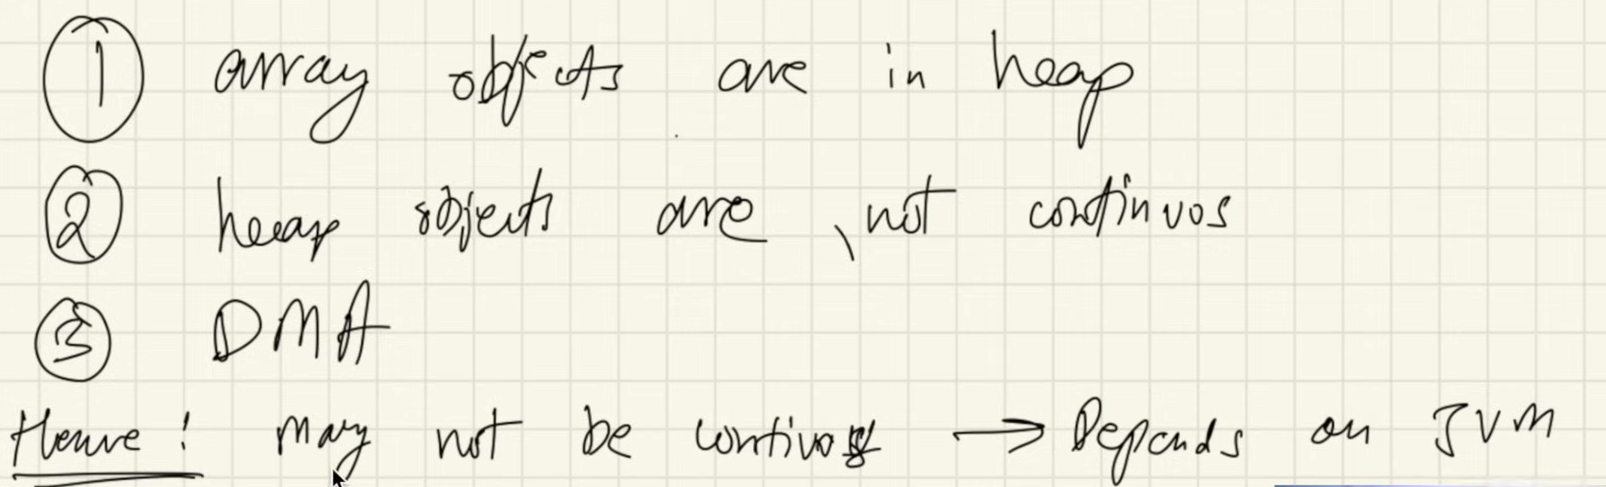 ① array objects are in heap
② heap objects are not continuos
③ DMA
Hence: may not be continuos → Depends on JVM